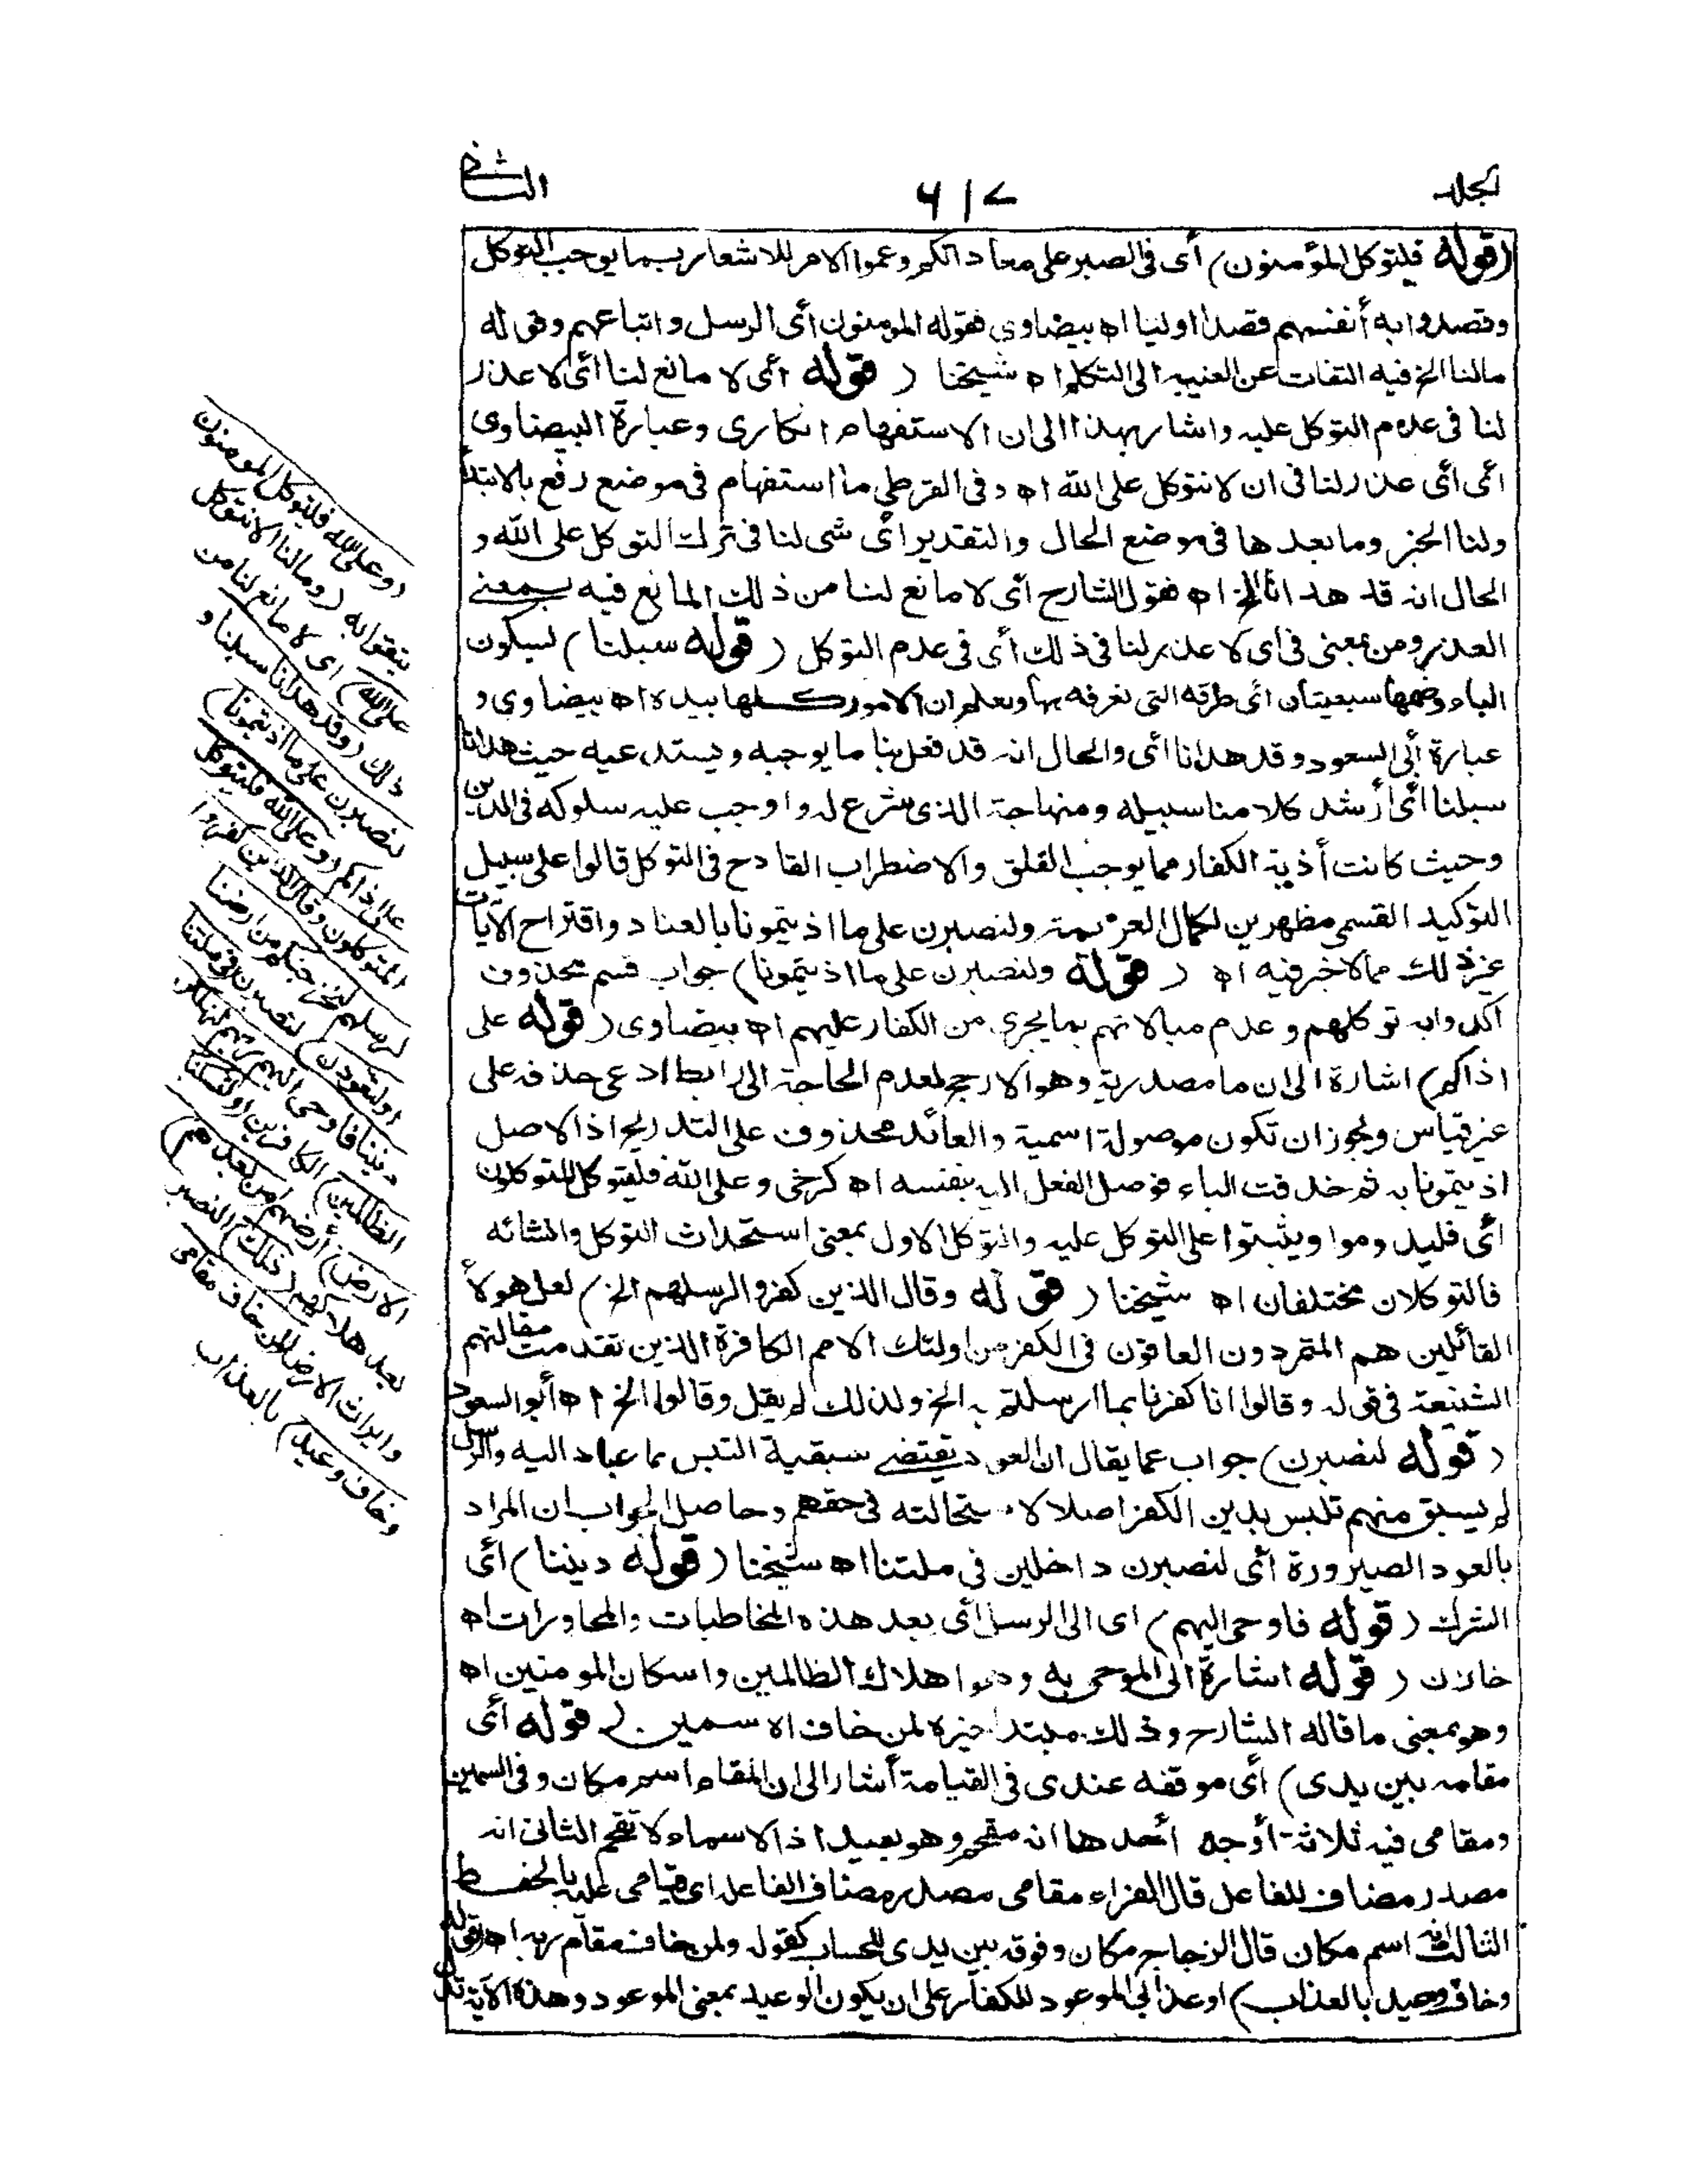 الجلد
٦١٧
الثاني
(قوله فليتوكل المؤمنون) أى فى الصبر على معاداتكم وعموا الامر للاشعار بما يوجب التوكل
وقصدوا به أنفسهم قصدا اوليا اه بيضاوى فقوله المومنون أى الرسل واتباعهم وقوله
مالنا الخ فيه التفات عن الغيبة الى التكلم اه شيخنا (قوله أى لا مانع لنا أى لا عذر
لنا فى عدم التوكل عليه واشار بهذا الى ان الاستفهام انكارى وعبارة البيضاوى
أى أى عذر لنا فى ان لا نتوكل على الله اه وفى القرطبي ما استفهام فى موضع رفع بالابتدأ
ولنا الخبر وما بعدها فى موضع الحال والتقدير أى شى لنا فى ترك التوكل على الله و
الحال انه قد هدانا الخ اه فقول الشارح أى لا مانع لنا من ذلك المانع فيه بمعنى
العذر ومن بمعنى فى اى لا عذر لنا فى ذلك أى فى عدم التوكل (قوله سبلنا) بسكون
الباء وضمها سبعيتان أى طرقه التى نعرفه بها ونعلم ان الامور كلها بيده اه بيضاوى و
عبارة أبى السعود وقد هدانا أى والحال انه قد فعل بنا ما يوجبه ويستدعيه حيث هدانا
سبلنا أى أرشد كلا منا سبيله ومنهاجه الذى شرع له واوجب عليه سلوكه فى الدين
وحيث كانت أذية الكفار مما يوجب القلق والاضطراب القادح فى التوكل قالوا على سبيل
التوكيد القسمى مظهرين لكمال العزيمة ولنصبرن على ما اذيتمونا بالعناد واقتراح الآيات
غير ذلك مما لا خير فيه اه (قوله ولنصبرن على ما اذيتمونا) جواب قسم محذوف
أكدوا به توكلهم وعدم مبالاتهم بما يجرى من الكفار عليهم اه بيضاوى (قوله على
اذاكم) اشارة الى ان ما مصدرية وهو الارجح لعدم الحاجة الى رابط ادعى حذفه على
غير قياس ويجوز ان تكون موصولة اسمية والعائد محذوف على التدريج اذ الاصل
اذيتمونا به ثم حذفت الباء فوصل الفعل اليه بنفسه اه كرخى وعلى الله فليتوكل المتوكلون
أى فليدوموا ويثبتوا على التوكل عليه والتوكل الاول بمعنى استحداث التوكل وانشائه
فالتوكلان مختلفان اه شيخنا (قوله وقال الذين كفروا لرسلهم الخ) لعل هولأ
القائلين هم المتمردون العاتون فى الكفر من اولئك الامم الكافرة الذين تقدمت مقالتهم
الشنيعة فى قوله وقالوا انا كفرنا بما ارسلتم به الخ ولذلك لم يقل وقالوا الخ اه أبو السعود
(قوله لنصبرن) جواب عما يقال ان العود يقتضى سبقية التلبس بما عاد اليه والرسل
لم يسبق منهم تلبس بدين الكفر اصلا لاستحالته فى حقهم وحاصل الجواب ان المراد
بالعود الصيرورة أى لنصيرن داخلين فى ملتنا اه شيخنا (قوله ديننا) أى
الشرك (قوله فاوحى اليهم) اى الى الرسل أى بعد هذه المخاطبات والمحاورات اه
خازن (قوله اشارة الى الموحى به وهو اهلاك الظالمين واسكان المومنين اه
وهو بمعنى ما قاله الشارح وذلك مبتدا خبره لمن خاف اه سمين (قوله أى
مقامه بين يدى) أى موقفه عندى فى القيامة أشار الى ان المقام اسم مكان وفى السمين
ومقامى فيه ثلاثة أوجه أحدها انه مقحم وهو بعيد اذ الاسماء لا تقحم الثانى انه
مصدر مضاف للفاعل قال الفراء مقامى مصدر مضاف للفاعل اى قيامى عليه بالحفظ
الثالث انه اسم مكان قال الزجاج مكان وقوفه بين يدى للحساب كقوله ولمن خاف مقام ربه اه (قوله
وخاف وعيد بالعذاب) او عذابى الموعود للكفار على ان يكون الوعيد بمعنى الموعود وهذه الآية تدل
(وعلى الله فليتوكل المومنون
يثقوا به (ومالنا الا نتوكل
على الله) اى لا مانع لنا من
ذلك (وقد هدانا سبلنا و
لنصبرن على ما اذيتمونا)
على اذاكم (وعلى الله فليتوكل
المتوكلون وقال الذين كفروا
لرسلهم لنخرجنكم من ارضنا
او لتعودن) لتصيرن (فى ملتنا
ديننا فاوحى اليهم ربهم لنهلكن
الظالمين) الكافرين (ولنسكننكم
الارض) أرضهم (من بعدهم)
بعد هلاكهم (ذلك) النصر
وايراث الارض (لمن خاف مقامى
وخاف وعيد) بالعذاب